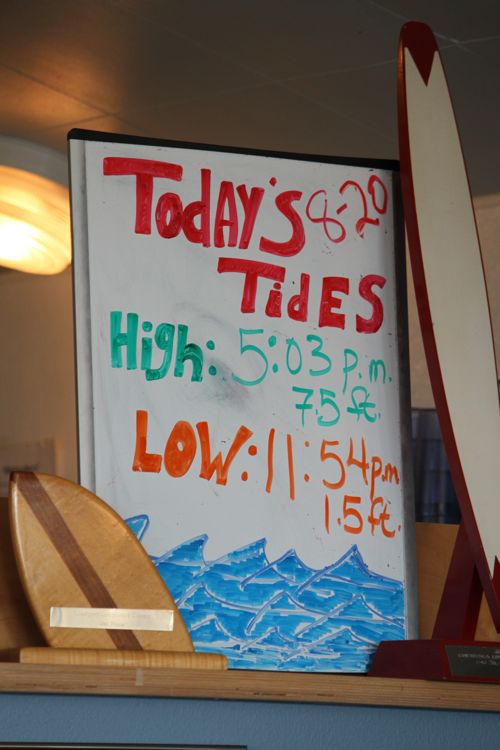 Today's 8-20
Tides
High: 5:03 p.m.
7.5 ft.
LOW: 11:54 p.m
1.5 ft.